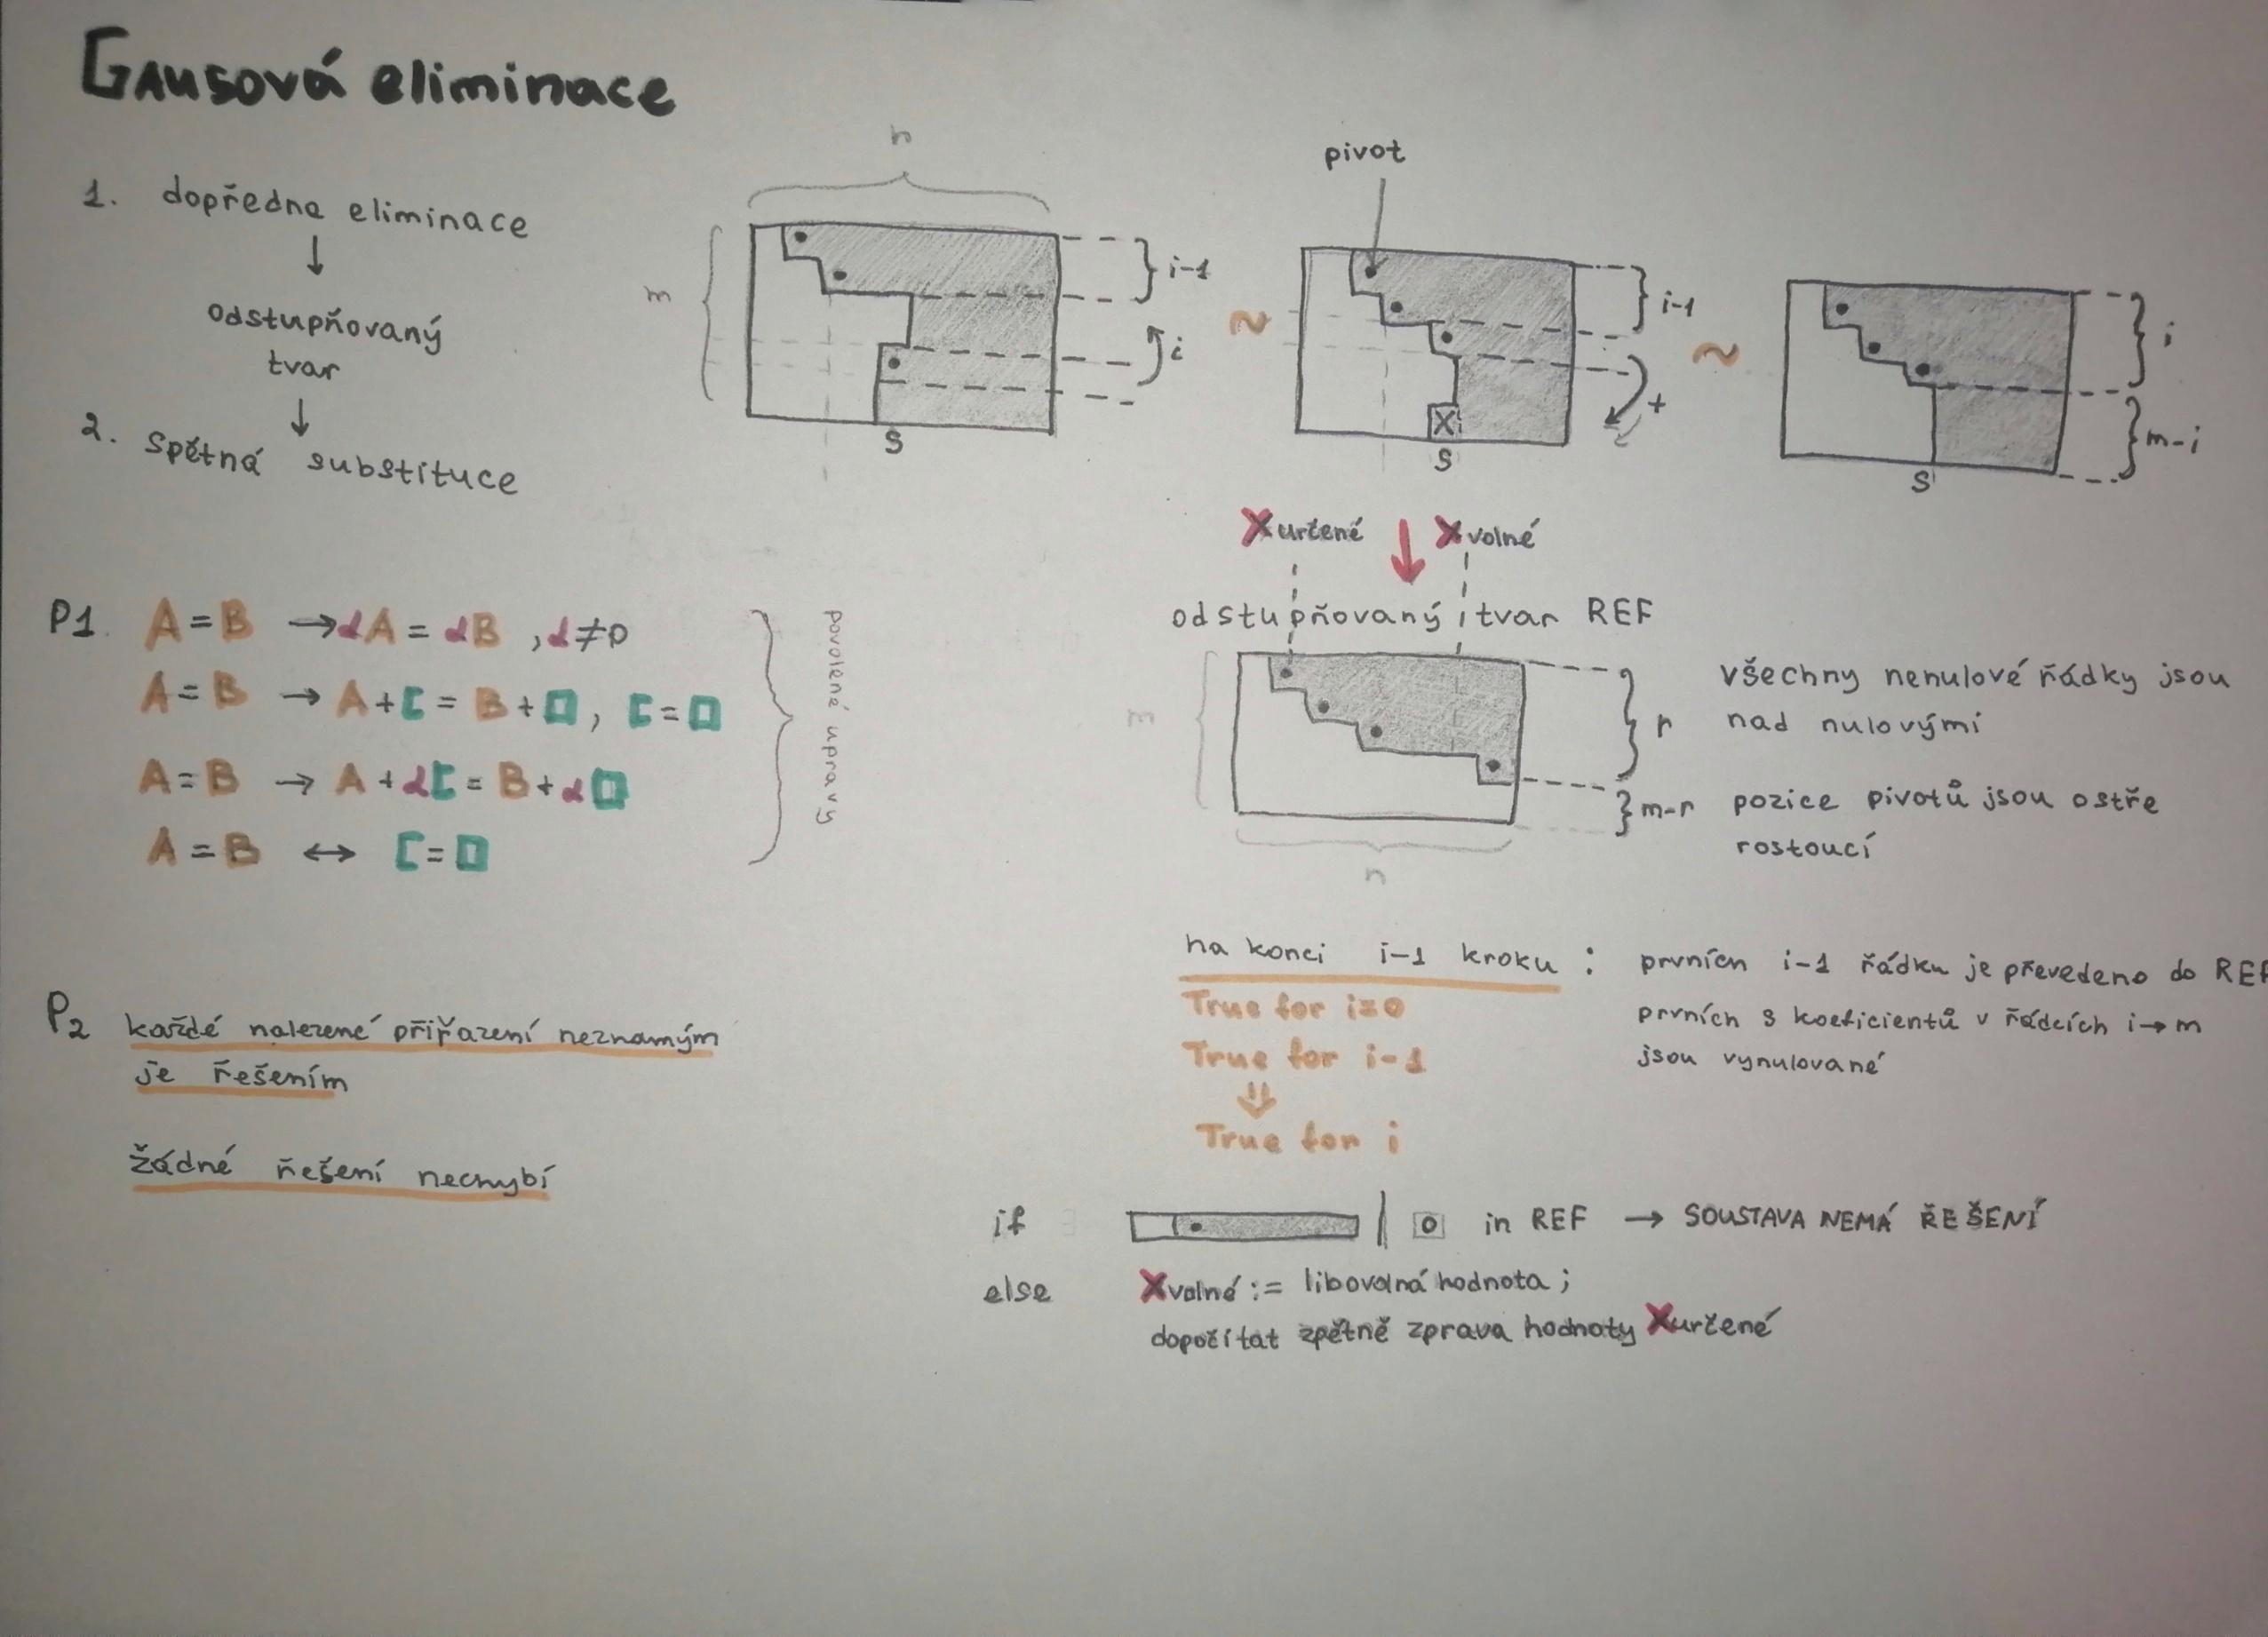 GAUSOVÁ eliminace
1. dopředna eliminace
↓
odstupňovaný
tvar
↓
2. Spětná substituce
n
m
i-1
i
s
~
pivot
i-1
+
X
s
~
i
m-i
s
P1. A = B → αA = αB , α≠0
A = B → A + C = B + D , C = D
A = B → A + αC = B + αD
A = B ↔ C = D
povolené upravy
Xurčené ↓ Xvolné
odstupňovaný tvar REF
m
n
r
m-r
všechny nenulové řádky jsou
nad nulovými
pozice pivotů jsou ostře
rostoucí
P2 každé nalezené přiřazení neznamým
je řešením
žádné řešení nechybí
na konci i-1 kroku :
True for i=0
True for i-1
⇓
True for i
prvních i-1 řádku je převedeno do REF
prvních s koeficientů v řádcích i→m
jsou vynulované
if | 0 in REF → SOUSTAVA NEMÁ ŘEŠENÍ
else Xvolné := libovolná hodnota ;
dopočítat zpětně zprava hodnoty Xurčené